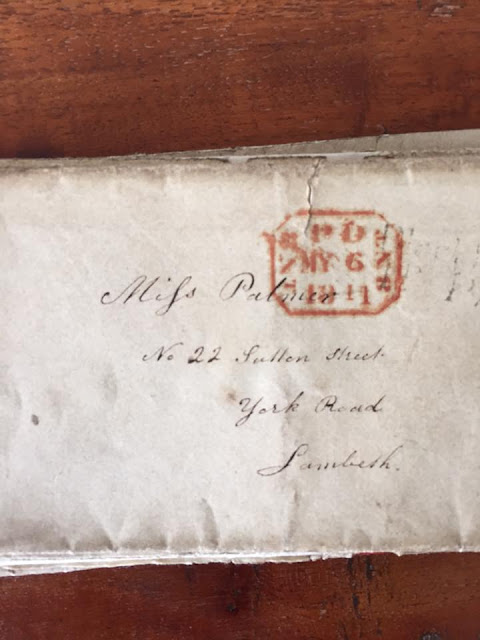 PD
MY 6
1841
Miss Palmer
No 22 Sutton Street
York Road
Lambeth.